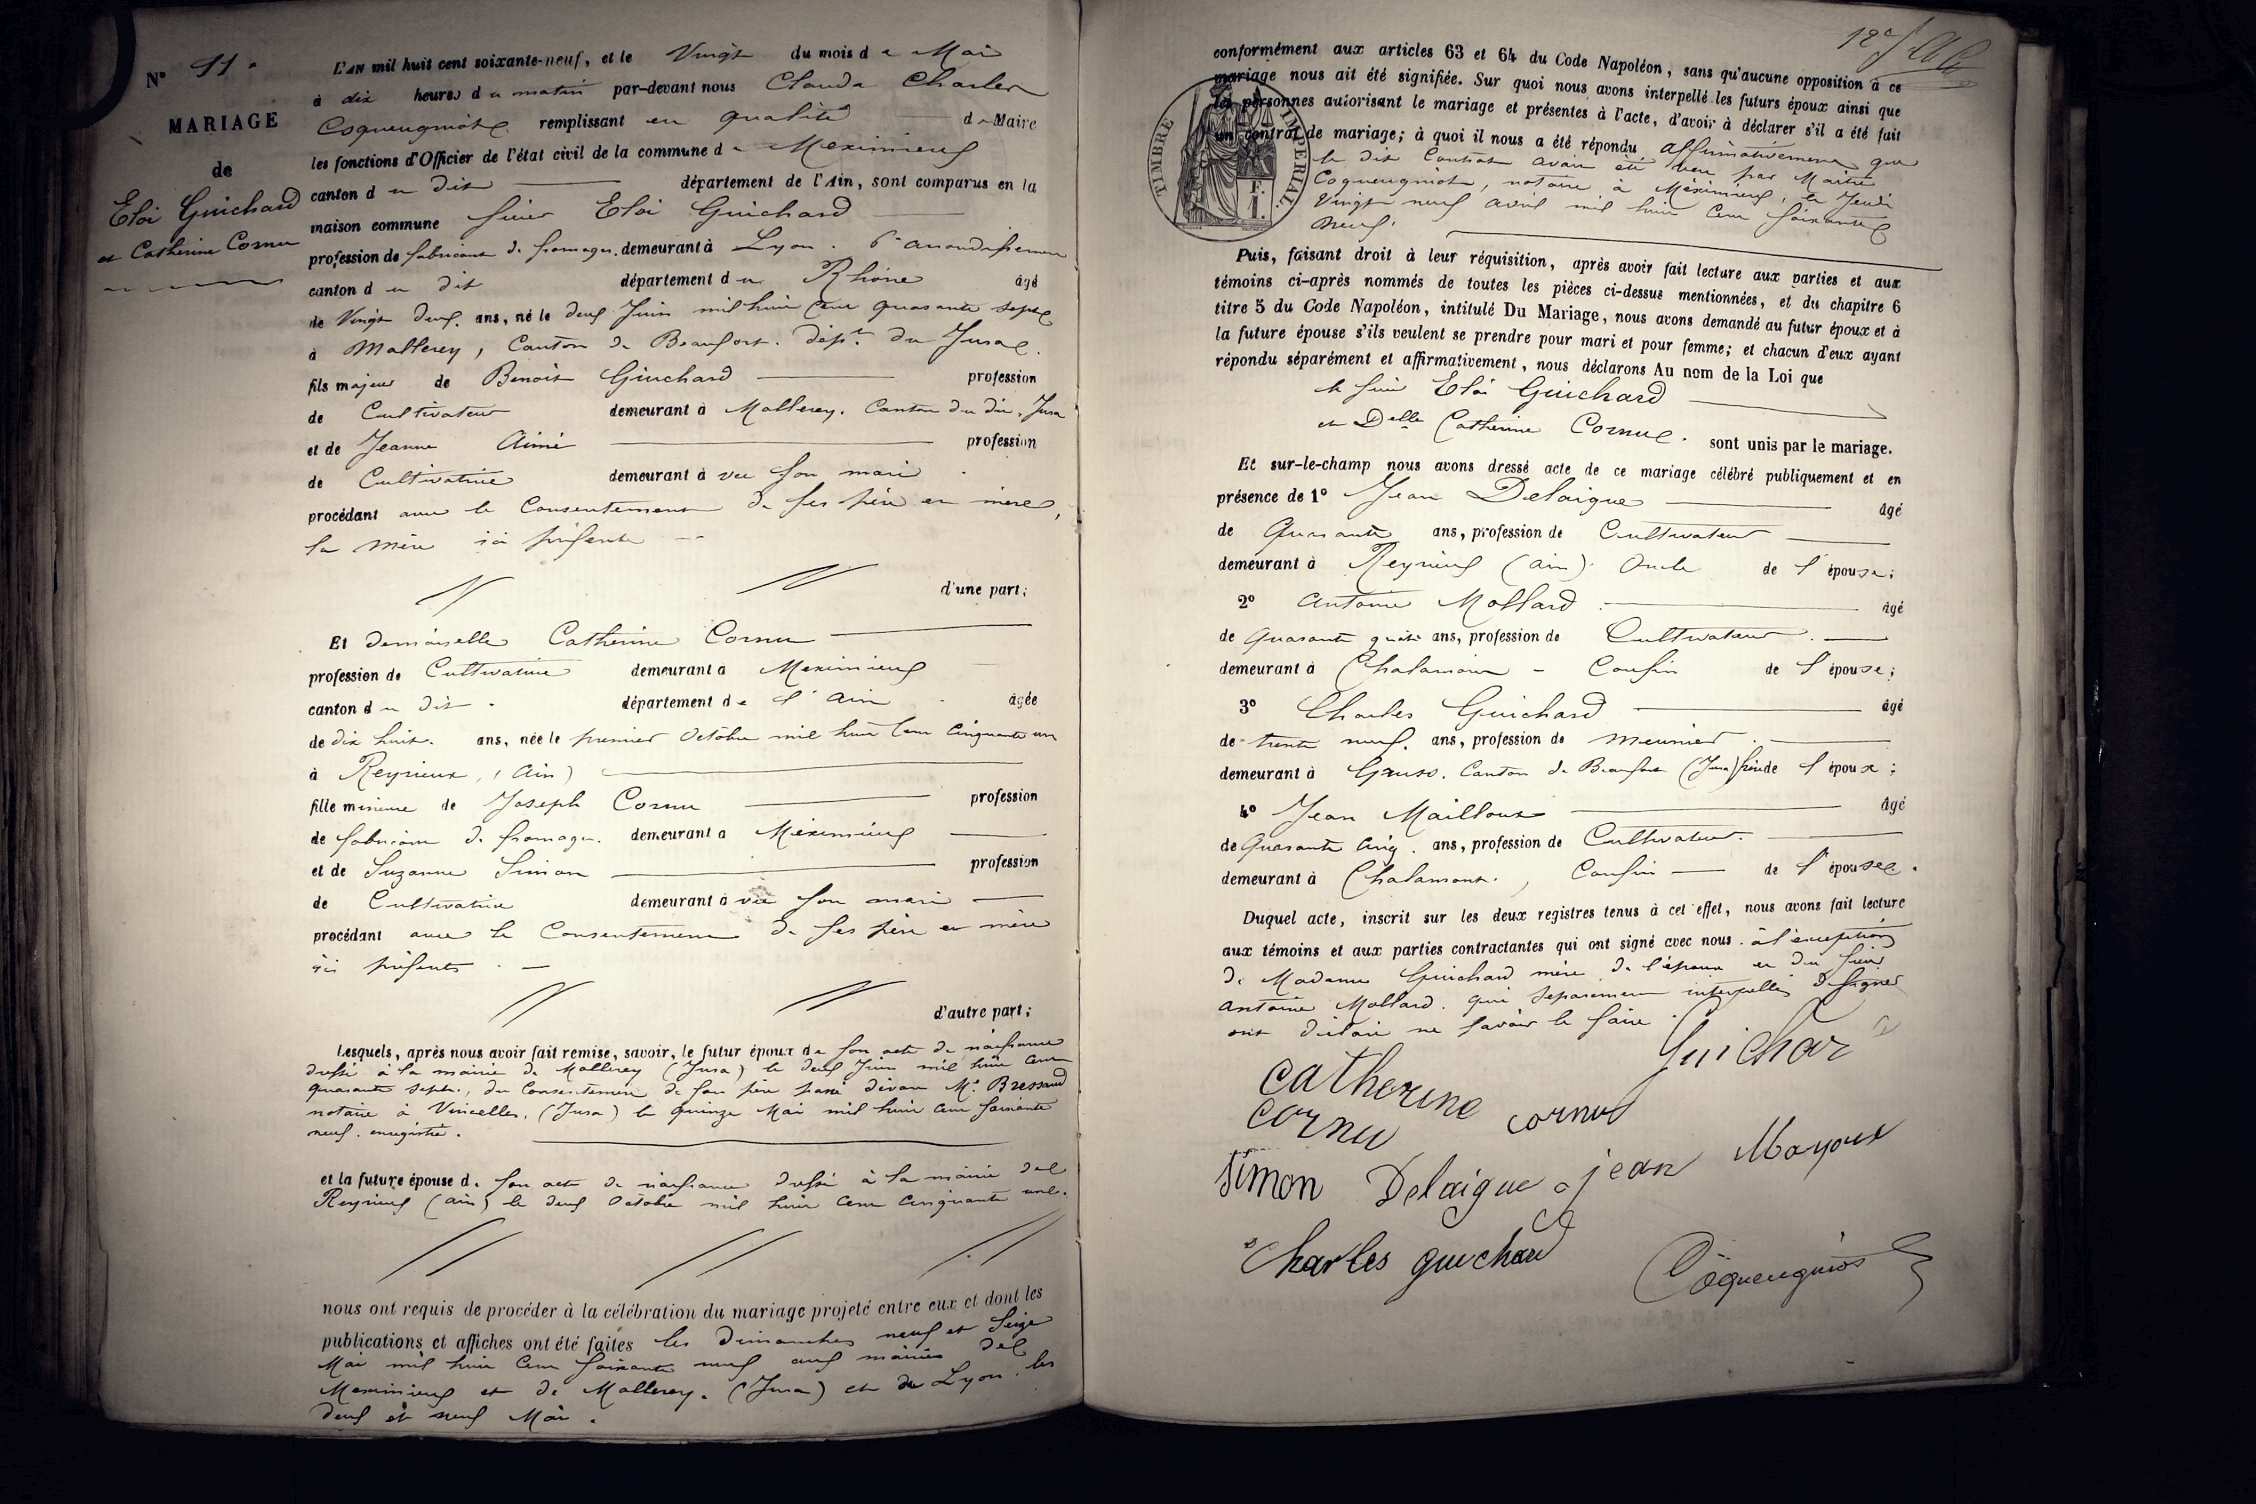 N° 11.
MARIAGE
de
Eloi Guichard
et Catherine Cornu
L'AN mil huit cent soixante-neuf, et le Vingt du mois de Mai
à dix heures du matin par-devant nous Claude Charles
Coqueugniot remplissant en qualité de Maire
les fonctions d'Officier de l'état civil de la commune de Meximieux
canton du dit département de l'Ain, sont comparus en la
maison commune sieur Eloi Guichard
profession de fabricant de fromages demeurant à Lyon. 6e arrondissement
canton du dit département du Rhône âgé
de Vingt deux ans, né le deux Juin mil huit cent quarante sept
à Mallerey, Canton de Beaufort. dépt. du Jura.
fils majeur de Benoit Guichard profession
de Cultivateur demeurant à Mallerey. Canton du dit, Jura
et de Jeanne Aimé profession
de Cultivatrice demeurant à vec son mari
procédant avec le Consentement de ses père et mère,
la mère ici présente
d'une part;
Et demoiselle Catherine Cornu
profession de Cultivatrice demeurant à Meximieux
canton du dit département de l'Ain âgée
de dix huit ans, née le premier Octobre mil huit cent cinquante un
à Reyrieux, (Ain)
fille mineure de Joseph Cornu profession
de fabricant de fromages demeurant à Méximieux
et de Suzanne Simon profession
de Cultivatrice demeurant à vec son mari
procédant avec le Consentement de ses père et mère
ici présents
d'autre part;
Lesquels, après nous avoir fait remise, savoir, le futur époux de son acte de naissance
dressé à la mairie de Mallerey (Jura) le deux Juin mil huit cent
quarante sept, du consentement de son père passé devant Me Bressaud
notaire à Vincelles, (Jura) le quinze Mai mil huit cent soixante
neuf. enregistré.
et la future épouse de son acte de naissance dressé à la mairie de
Reyrieux (Ain) le deux Octobre mil huit cent cinquante un.
nous ont requis de procéder à la célébration du mariage projeté entre eux et dont les
publications et affiches ont été faites les Dimanches neuf et Seize
Mai mil huit cent soixante neuf aux mairies de
Meximieux et de Mallerey. (Jura) et de Lyon. les
deux et neuf Mai.
TIMBRE IMPERIAL
conformément aux articles 63 et 64 du Code Napoléon, sans qu'aucune opposition à ce
mariage nous ait été signifiée. Sur quoi nous avons interpellé les futurs époux ainsi que
les personnes autorisant le mariage et présentes à l'acte, d'avoir à déclarer s'il a été fait
un contrat de mariage; à quoi il nous a été répondu affirmativement que
le dit Contrat avait été reçu par Maître
Coqueugniot, notaire à Méximieux, le Jeudi
Vingt neuf avril mil huit cent soixante
neuf.
Puis, faisant droit à leur réquisition, après avoir fait lecture aux parties et aux
témoins ci-après nommés de toutes les pièces ci-dessus mentionnées, et du chapitre 6
titre 5 du Code Napoléon, intitulé Du Mariage, nous avons demandé au futur époux et à
la future épouse s'ils veulent se prendre pour mari et pour femme; et chacun d'eux ayant
répondu séparément et affirmativement, nous déclarons Au nom de la Loi que
le sieur Eloi Guichard
et Delle Catherine Cornu. sont unis par le mariage.
Et sur-le-champ nous avons dressé acte de ce mariage célébré publiquement et en
présence de 1° Jean Delaigue âgé
de Quarante ans, profession de Cultivateur
demeurant à Reyrieux (Ain). Oncle de l'épouse;
2° Antoine Mollard âgé
de Quarante quatre ans, profession de Cultivateur
demeurant à Chalamont - Cousin de l'épouse;
3° Charles Guichard âgé
de trente neuf. ans, profession de meunier
demeurant à Canton de Beaufort (Jura) frère de l'époux;
4° Jean Mailloux âgé
de Quarante cinq. ans, profession de Cultivateur.
demeurant à Chalamont, Cousin de l'épouse.
Duquel acte, inscrit sur les deux registres tenus à cet effet, nous avons fait lecture
aux témoins et aux parties contractantes qui ont signé avec nous. à l'exception
de Madame Guichard mère de l'époux et du sieur
Antoine Mollard. qui séparément interpellés de signer
ont déclaré ne savoir le faire.
guichard
catherine
cornu cornu
simon Delaigue jean Mayoux
Charles guichard
Coqueugniot